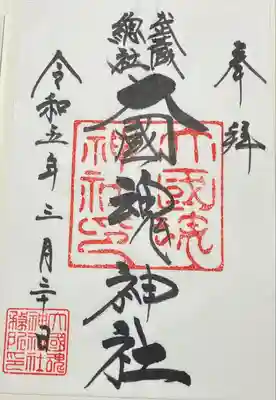 奉拝
武蔵
總社
大國魂神社
令和五年三月三十日
大國魂
神社印
大國魂
神社
務所印